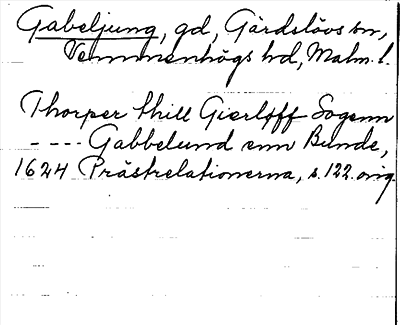 Gabeljung, gd, Gärdslövs sn,
Vemmenhögs hd, Malm. l.
Thorper thill Gierløff Sogenn
---- Gabbelund enn Bunde,
1624 Prästrelationerna, s. 122. orig.